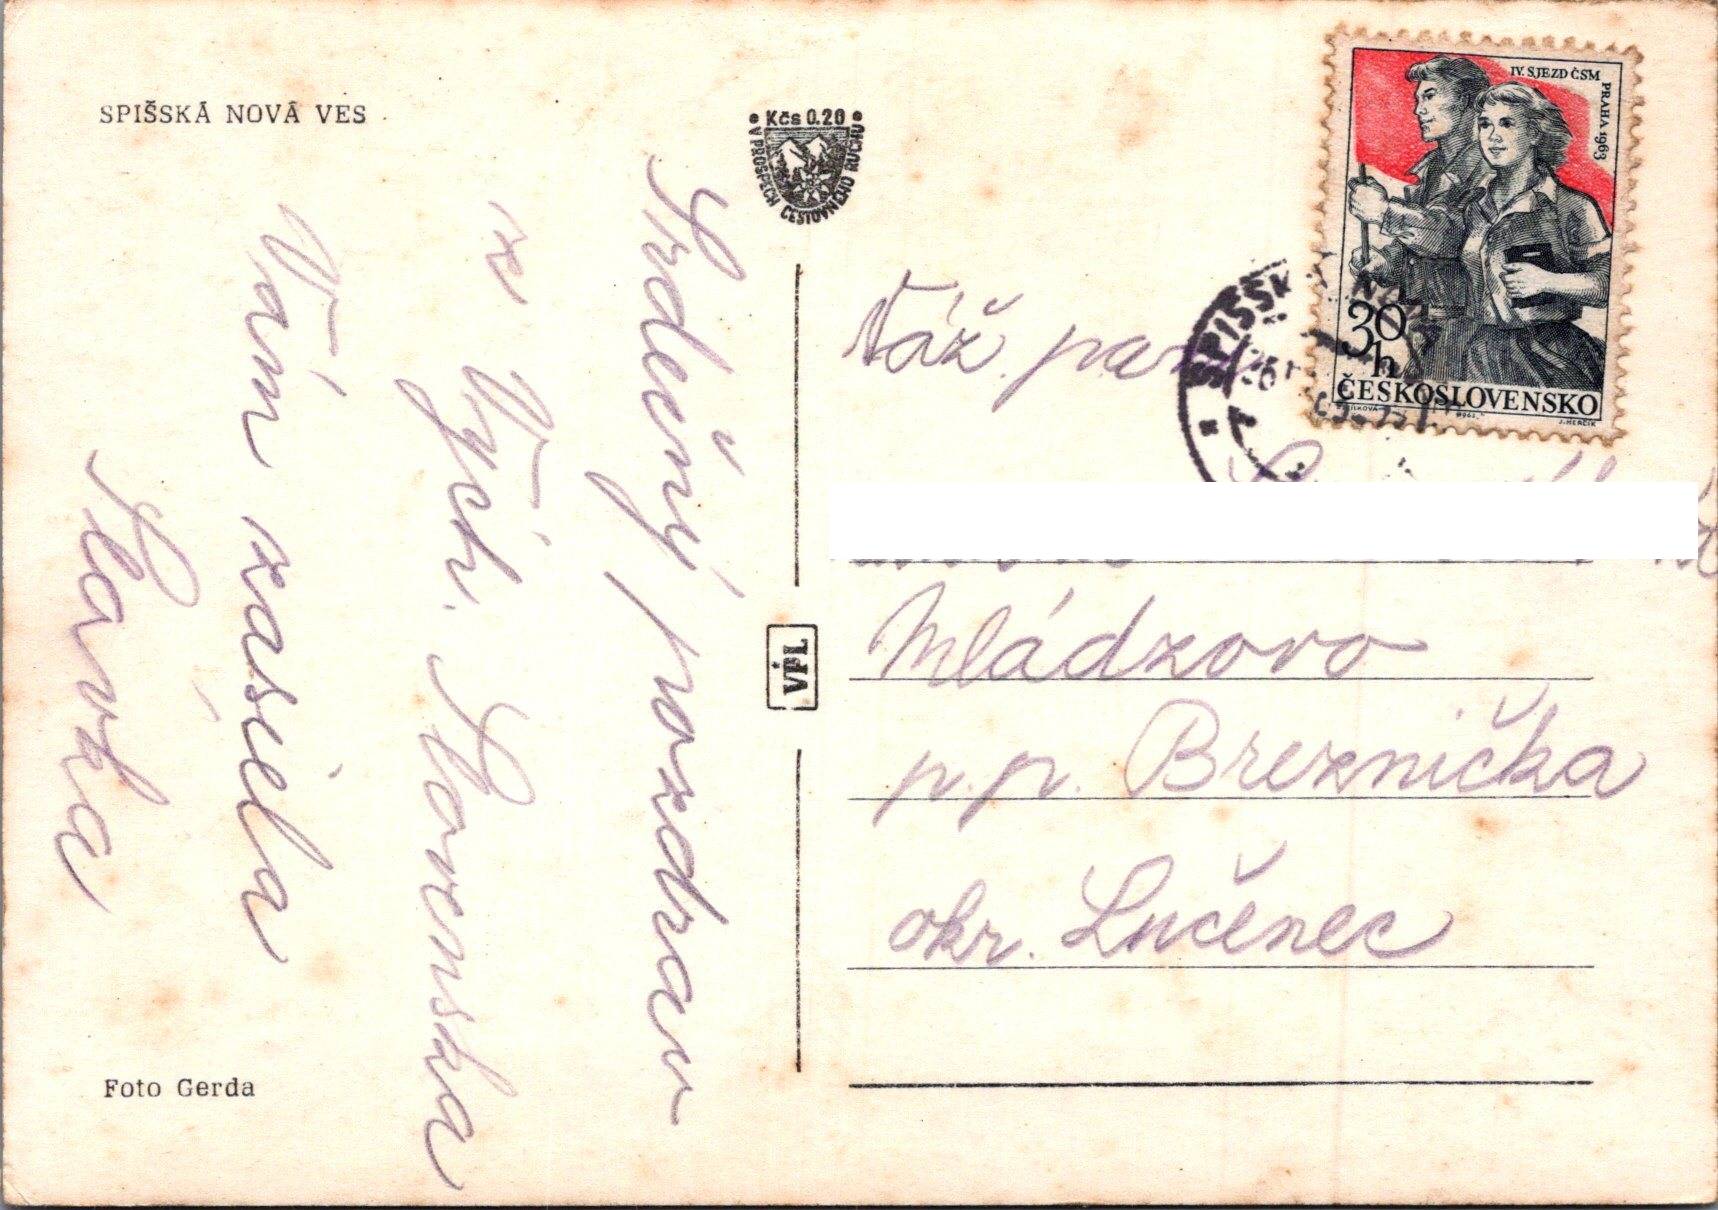 SPIŠSKÁ NOVÁ VES
Kčs 0.20
V PROSPECH CESTOVNÉHO RUCHU
Srdečný pozdrav
z Vých. Slovenska
Vám zasiela
Slávka
Foto Gerda
VPL
IV. SJEZD ČSM
PRAHA 1963
30
h
ČESKOSLOVENSKO
J. HERČÍK
SPIŠSK
Váž. pan
Mládzovo
p. p. Breznička
okr. Lučenec